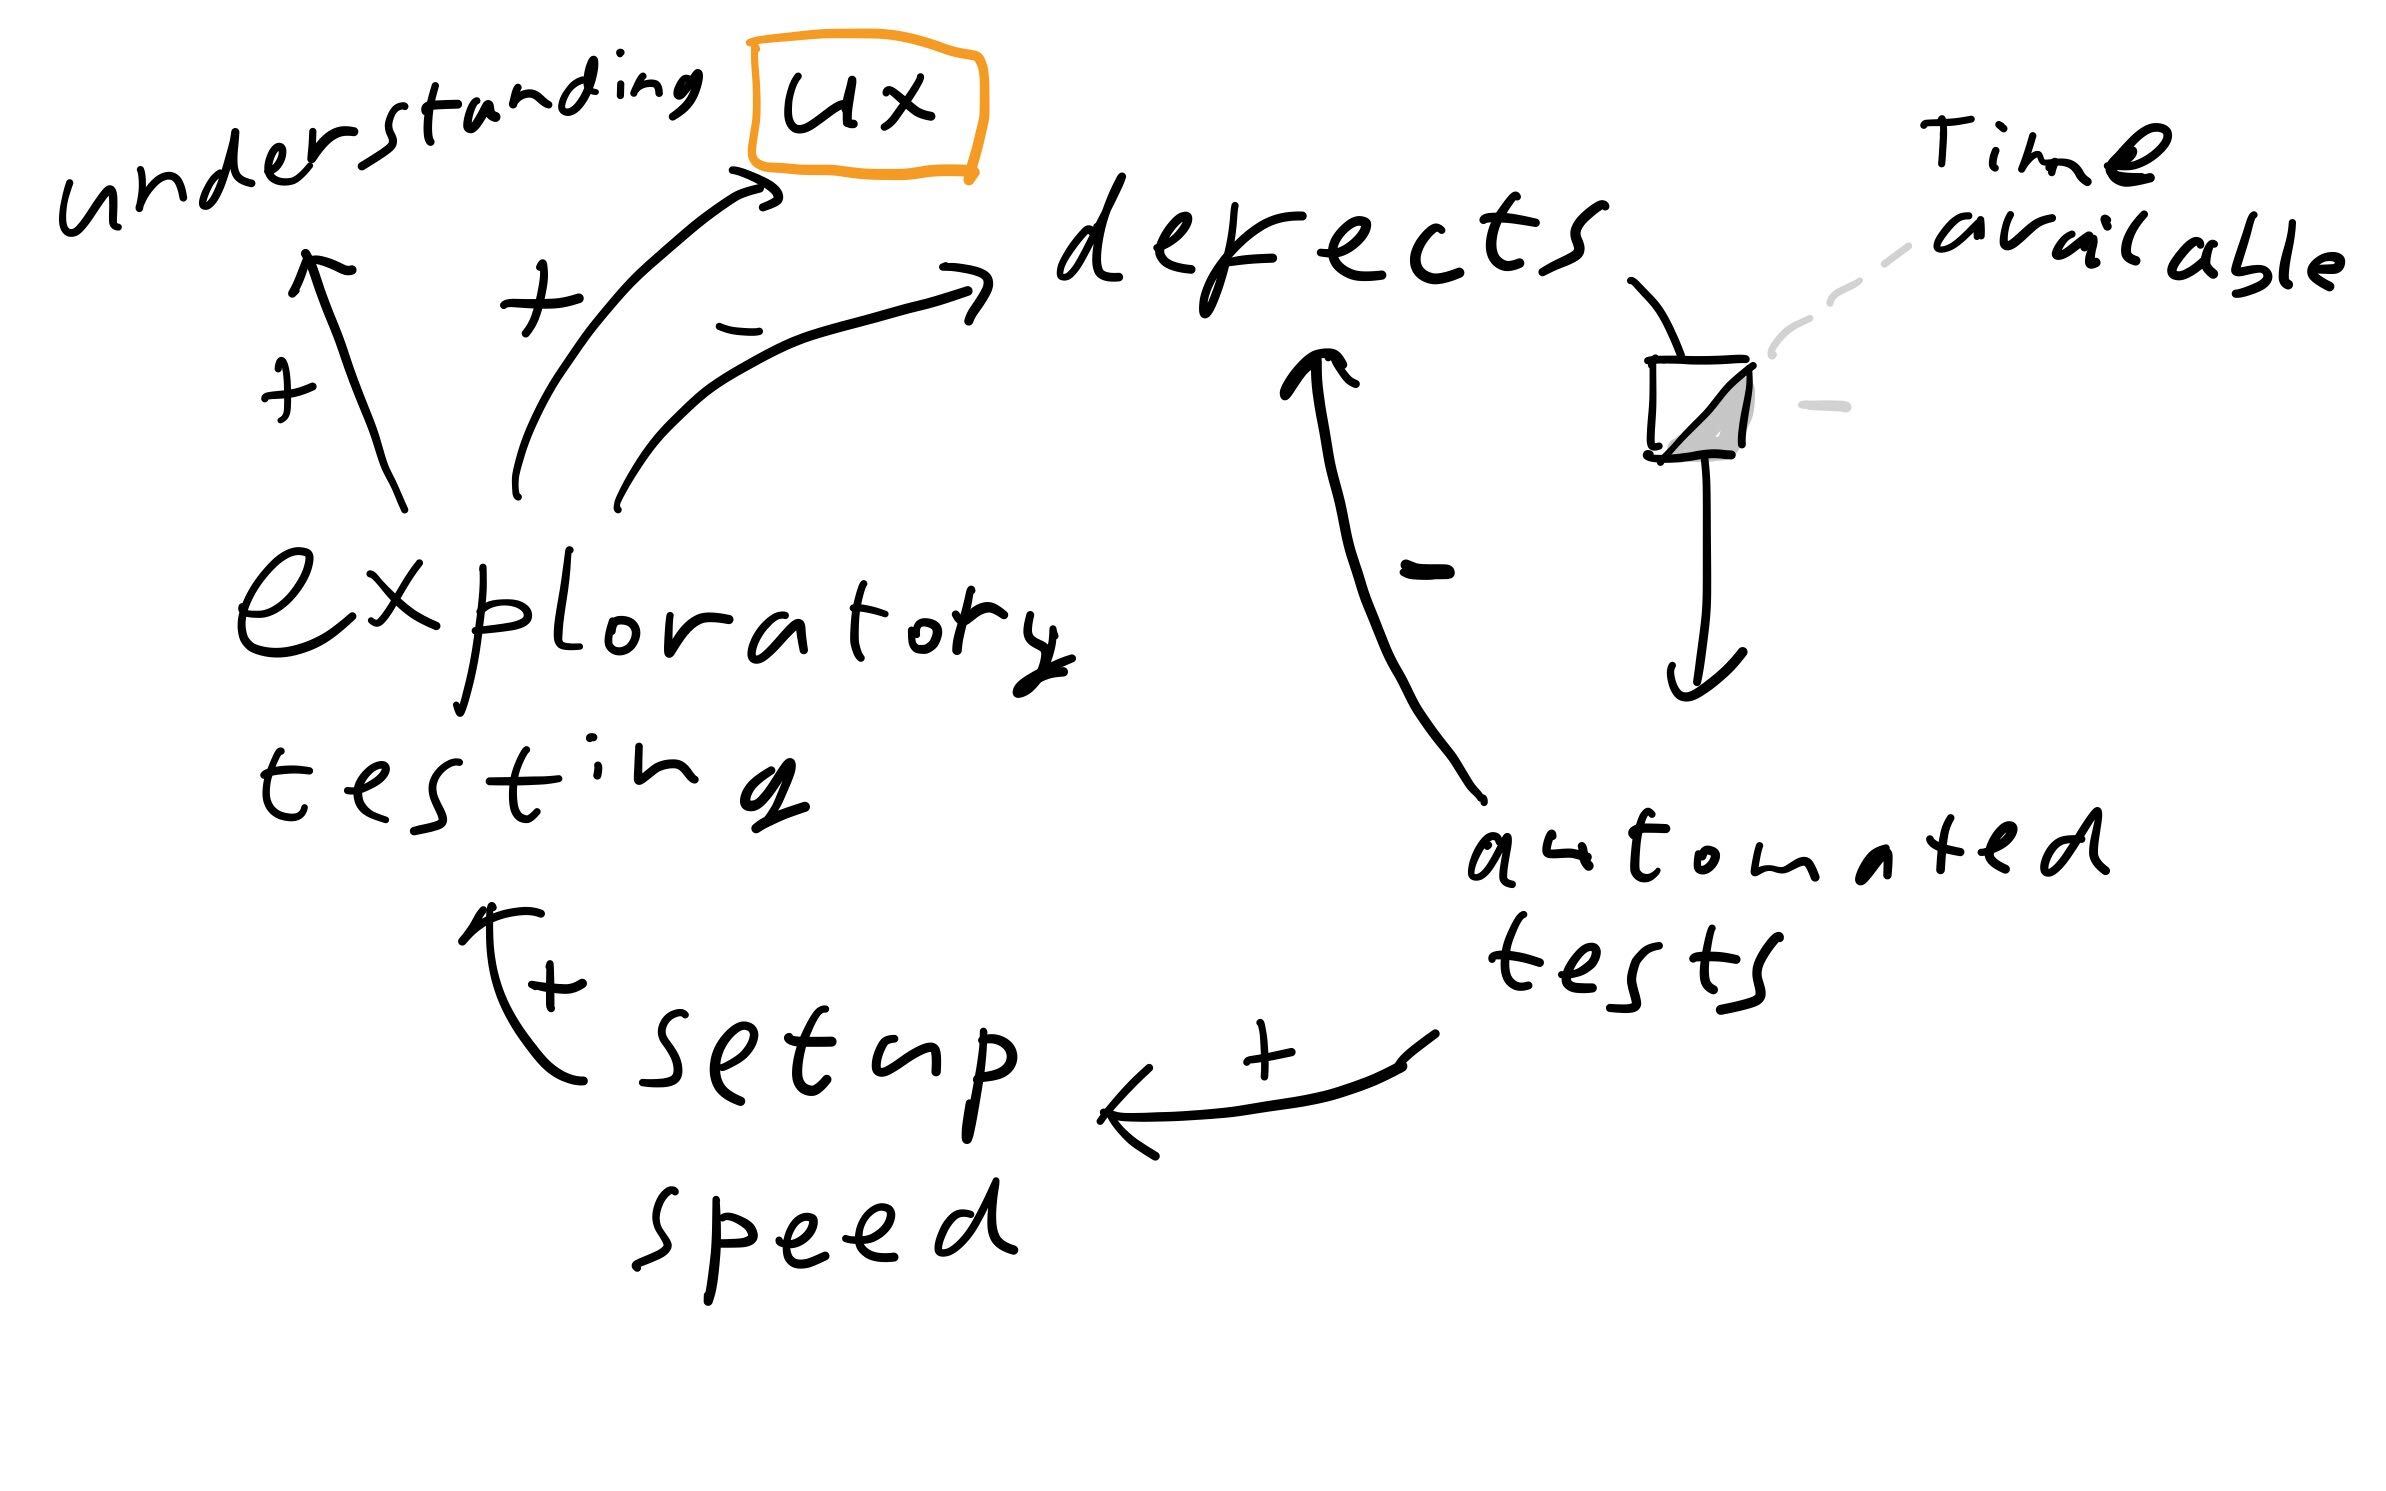 understanding
ux
defects
Time
available
+
+
-
-
exploratory
testing
-
automated
tests
+
setup
speed
+